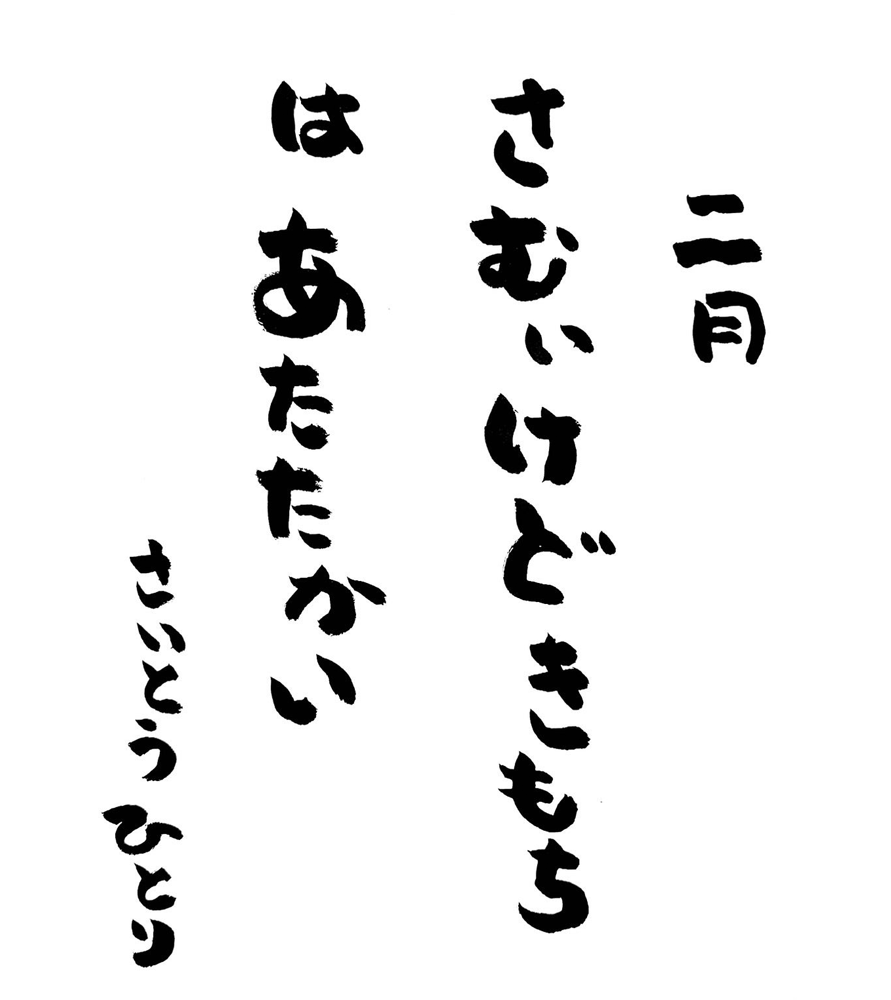 二月
さむいけど きもち
は あたたかい
さいとう ひとり